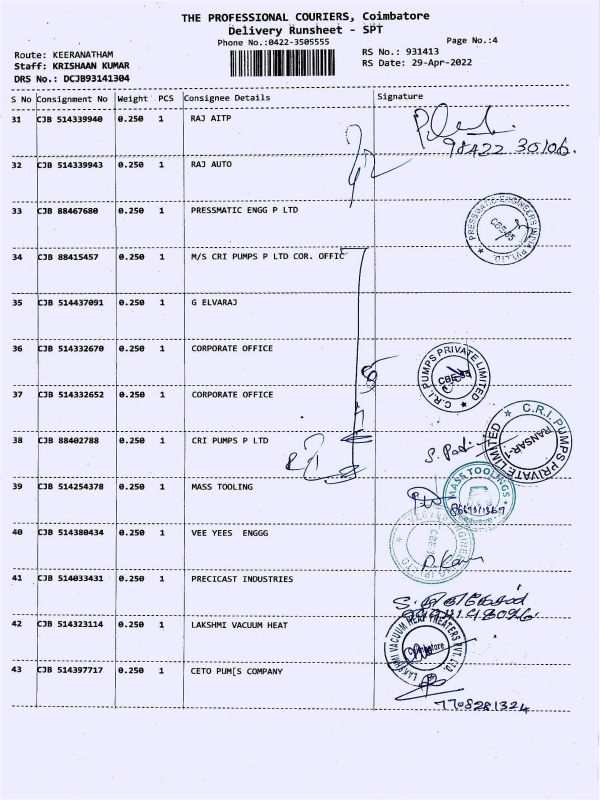 THE PROFESSIONAL COURIERS, Coimbatore
Delivery Runsheet - SPT
Phone No.:0422-3505555 Page No.:4
Route: KEERANATHAM RS No.: 931413
Staff: KRISHAAN KUMAR RS Date: 29-Apr-2022
DRS No.: DCJB93141304
S No Consignment No Weight PCS Consignee Details Signature
31 CJB 514339940 0.250 1 RAJ AITP
98422 30106.
32 CJB 514339943 0.250 1 RAJ AUTO
33 CJB 88467680 0.250 1 PRESSMATIC ENGG P LTD
PRESSMATIC ENGINEERS INDIA PVT.LTD. CBE-35
34 CJB 88415457 0.250 1 M/S CRI PUMPS P LTD COR. OFFIC
35 CJB 514437091 0.250 1 G ELVARAJ
36 CJB 514332670 0.250 1 CORPORATE OFFICE
C.R.I. PUMPS PRIVATE LIMITED
37 CJB 514332652 0.250 1 CORPORATE OFFICE
C.R.I. PUMPS PRIVATE LIMITED
38 CJB 88402788 0.250 1 CRI PUMPS P LTD
39 CJB 514254378 0.250 1 MASS TOOLING
MASS TOOLINGS
40 CJB 514380434 0.250 1 VEE YEES ENGGG
41 CJB 514033431 0.250 1 PRECICAST INDUSTRIES
42 CJB 514323114 0.250 1 LAKSHMI VACUUM HEAT
LAKSHMI VACUUM HEAT TREATERS PVT. LTD.
43 CJB 514397717 0.250 1 CETO PUM[S COMPANY
7708281324